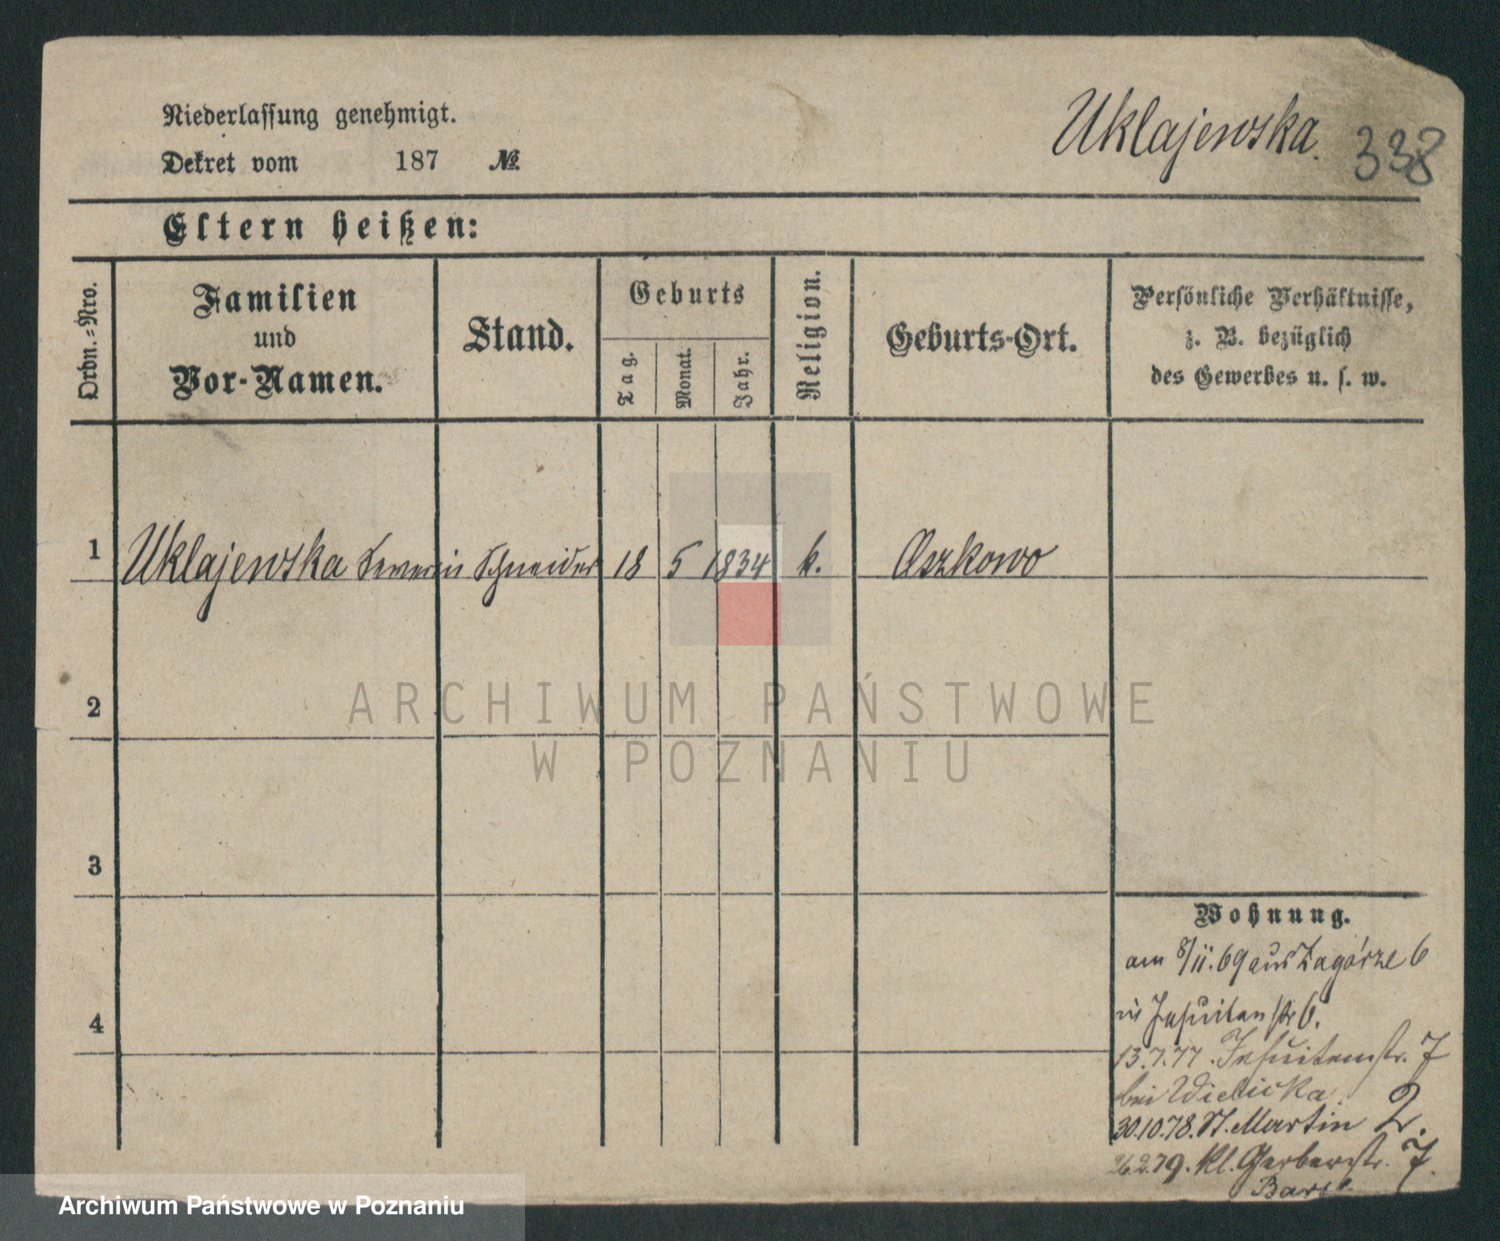 Niederlassung genehmigt.
Uklajewska.
338
Dekret vom 187 №
Eltern heißen:
Ordn.=Nro.
Familien
und
Vor-Namen.
Stand.
Geburts
Tag.
Monat.
Jahr.
Religion.
Geburts-Ort.
Persönliche Verhältnisse,
z. B. bezüglich
des Gewerbes u. s. w.
1 Uklajewska Severin Schneider 18 5 1834 k. Oszkowo
2
3
4
Wohnung.
am 8/11.69 aus Zagórze 6
in Jesuitenstr 6.
13.7.77. Jesuitenstr. 7
bei Wielicka.
30.10.78. St. Martin 2.
26.2.79. Kl. Gerberstr. 7.
ARCHIWUM PAŃSTWOWE
W POZNANIU
Archiwum Państwowe w Poznaniu